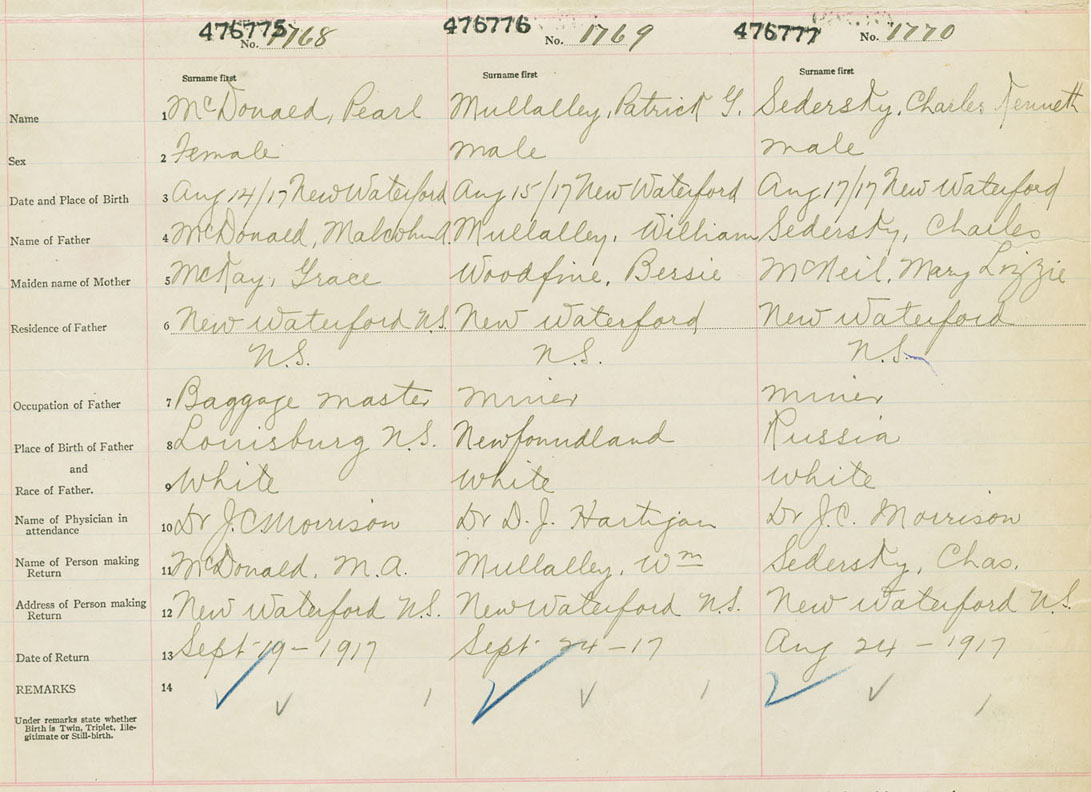 476775 476776 476777
No. 1768 No. 1769 No. 1770
Surname first Surname first Surname first
Name 1 McDonald, Pearl Mullalley, Patrick G. Sedersky, Charles Kenneth
Sex 2 Female male male
Date and Place of Birth 3 Aug 14/17 New Waterford Aug 15/17 New Waterford Aug 17/17 New Waterford
Name of Father 4 McDonald, Mullalley, William Sedersky, Charles
Maiden name of Mother 5 McKay, Grace Woodfine, Bersie McNeil, Mary Lizzie
Residence of Father 6 New Waterford N.S. New Waterford New Waterford
N.S. N.S. N.S.
Occupation of Father 7 Baggage master miner miner
Place of Birth of Father 8 Louisburg N.S. Newfoundland Russia
and
Race of Father. 9 White White White
Name of Physician in
attendance 10 Dr J.C Morrison Dr D. J. Hartigan Dr J.C. Morrison
Name of Person making
Return 11 McDonald, M.A. Mullalley, Wm Sedersky, Chas.
Address of Person making
Return 12 New Waterford N.S. New Waterford N.S. New Waterford N.S.
Date of Return 13 Sept 19 - 1917 Sept 24 - 17 Aug 24 - 1917
REMARKS 14
Under remarks state whether
Birth is Twin, Triplet, Ille-
gitimate or Still-birth.